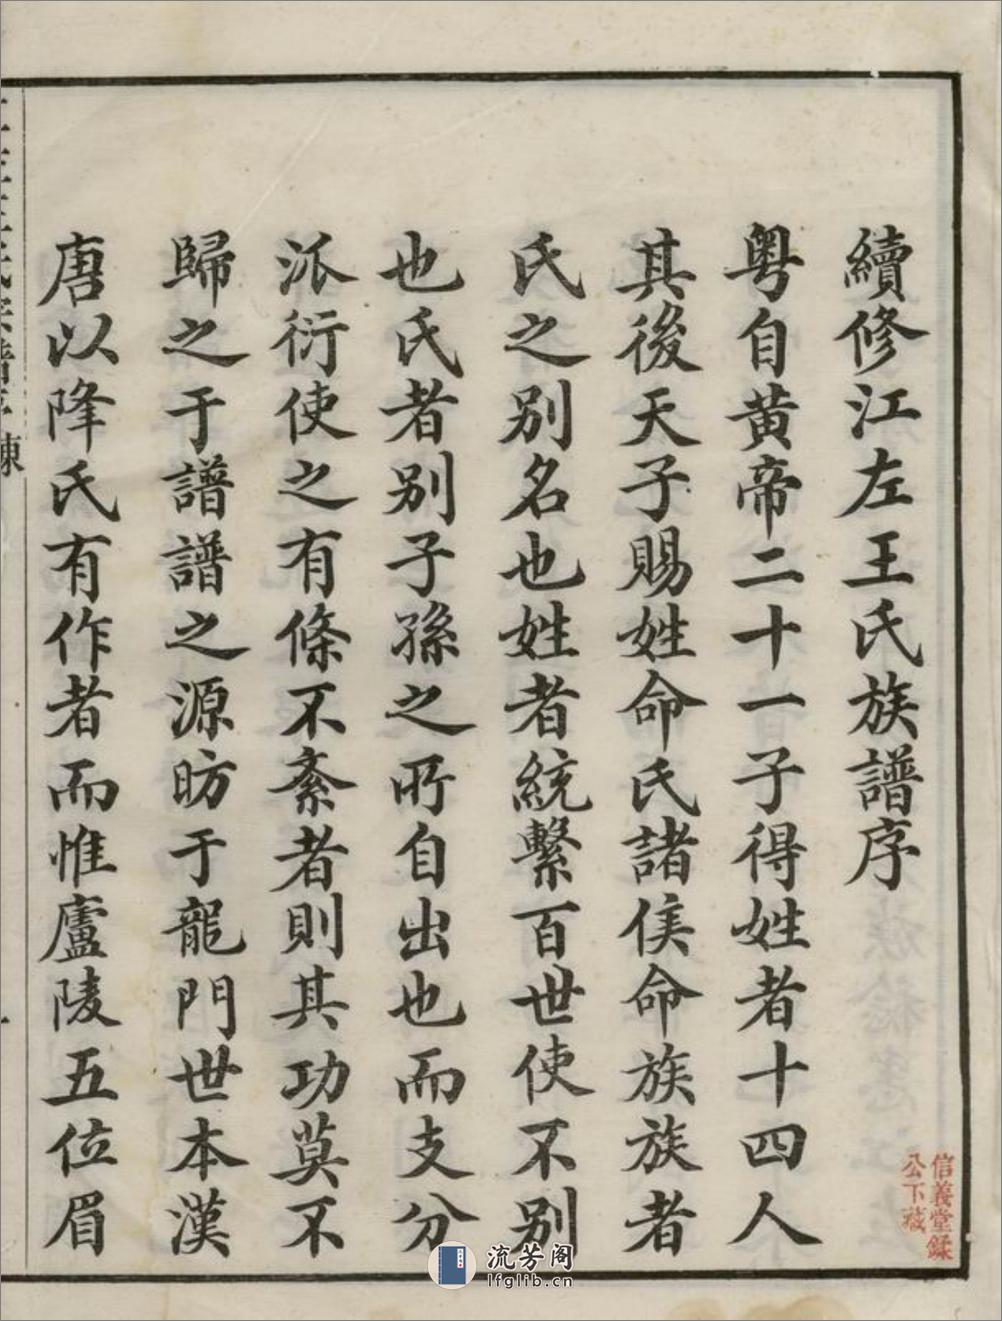 續修江左王氏族譜序
粵自黃帝二十一子得姓者十四人
其後天子賜姓命氏諸侯命族族者
氏之別名也姓者統繫百世使不別
也氏者別子孫之所自出也而支分
派衍使之有條不紊者則其功莫不
歸之于譜譜之源昉于龍門世本漢
唐以降氏有作者而惟廬陵五位眉
信義堂鍒
公下藏
流芳阁
lfglib.cn